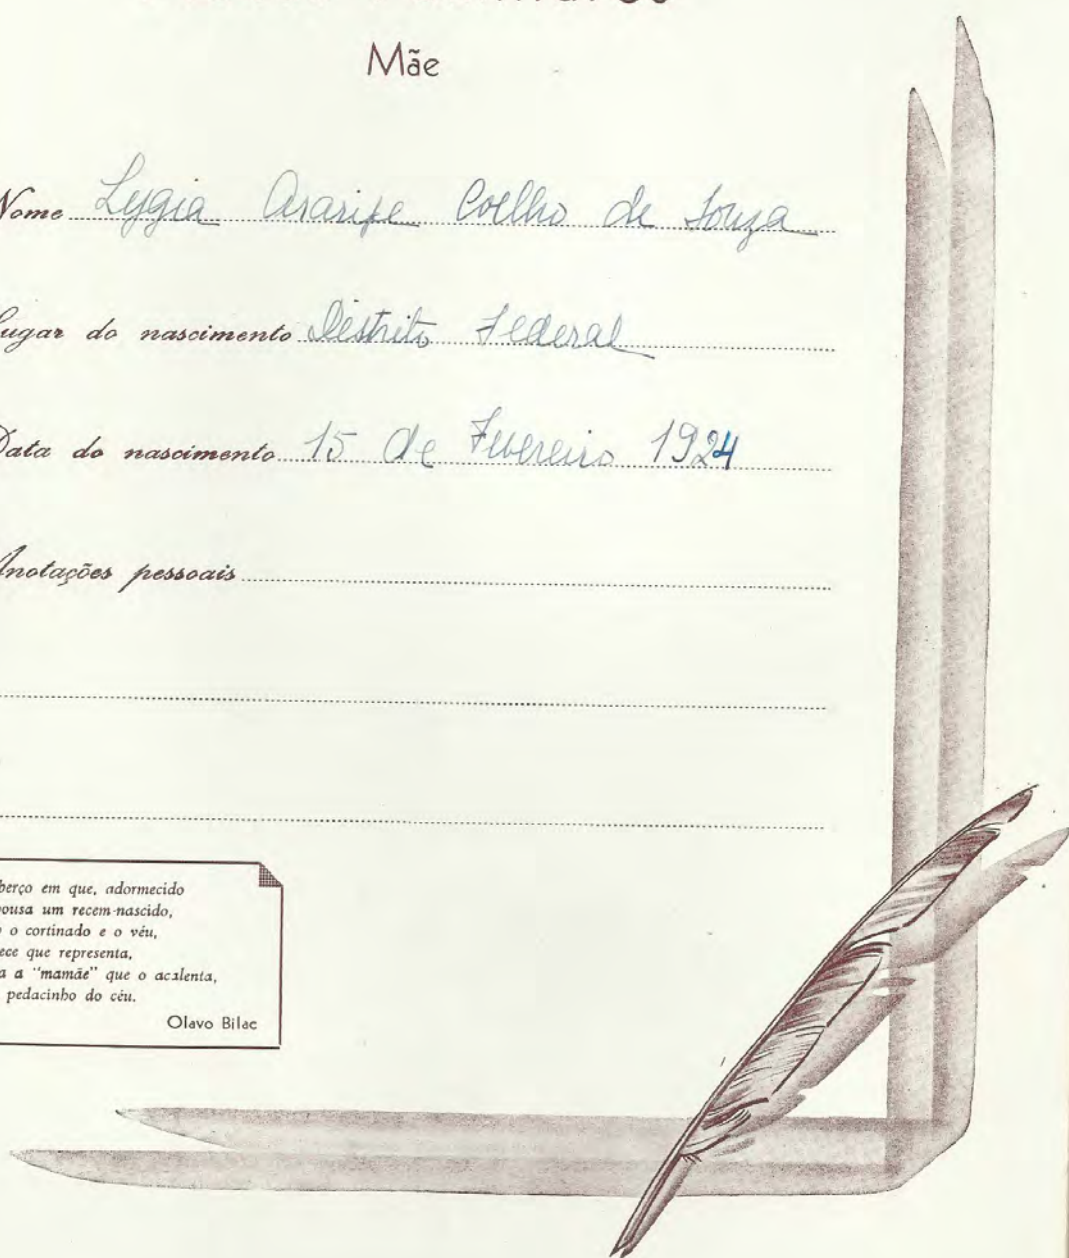 Mãe
Nome Lygia Araripe Coelho de Souza
Lugar do nascimento Distrito Federal
Data do nascimento 15 de Fevereiro 1924
Anotações pessoais
berço em que, adormecido
ousa um recem-nascido,
o cortinado e o véu,
ece que representa,
a a "mamãe" que o acalenta,
pedacinho do céu.
Olavo Bilac